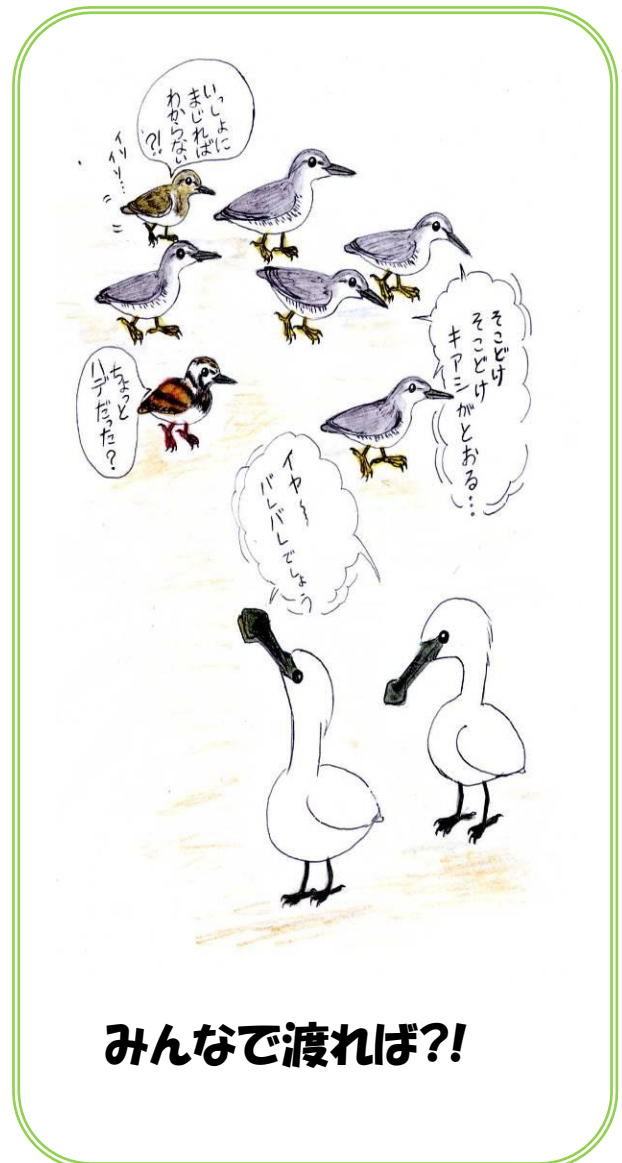 いっしょに
まじれば
わからない
?!
イソイソ…
そこどけ
そこどけ
キアシがとおる…
ちょっと
ハデだった?
イヤ〜
バレバレでしょう
みんなで渡れば?!